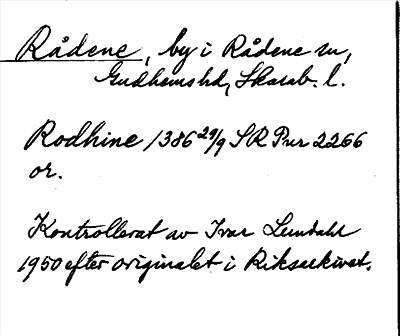 Rådene, by i Rådene sn,
Gudhems hd, Skarab. l.
Rodhine 1386 29/9 SRPnr 2266
or.
Kontrollerat av Ivar Lundahl
1950 efter originalet i Riksarkivet.